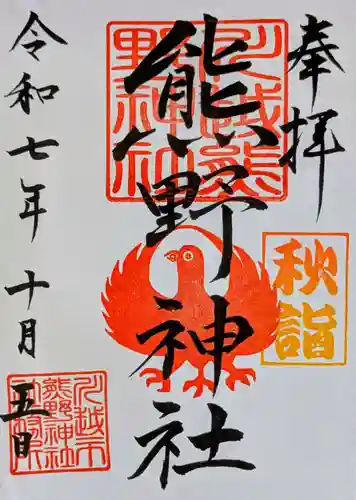 奉拝
川越熊野神社
熊野神社
秋詣
令和七年十月五日
川越市熊野神社社務所